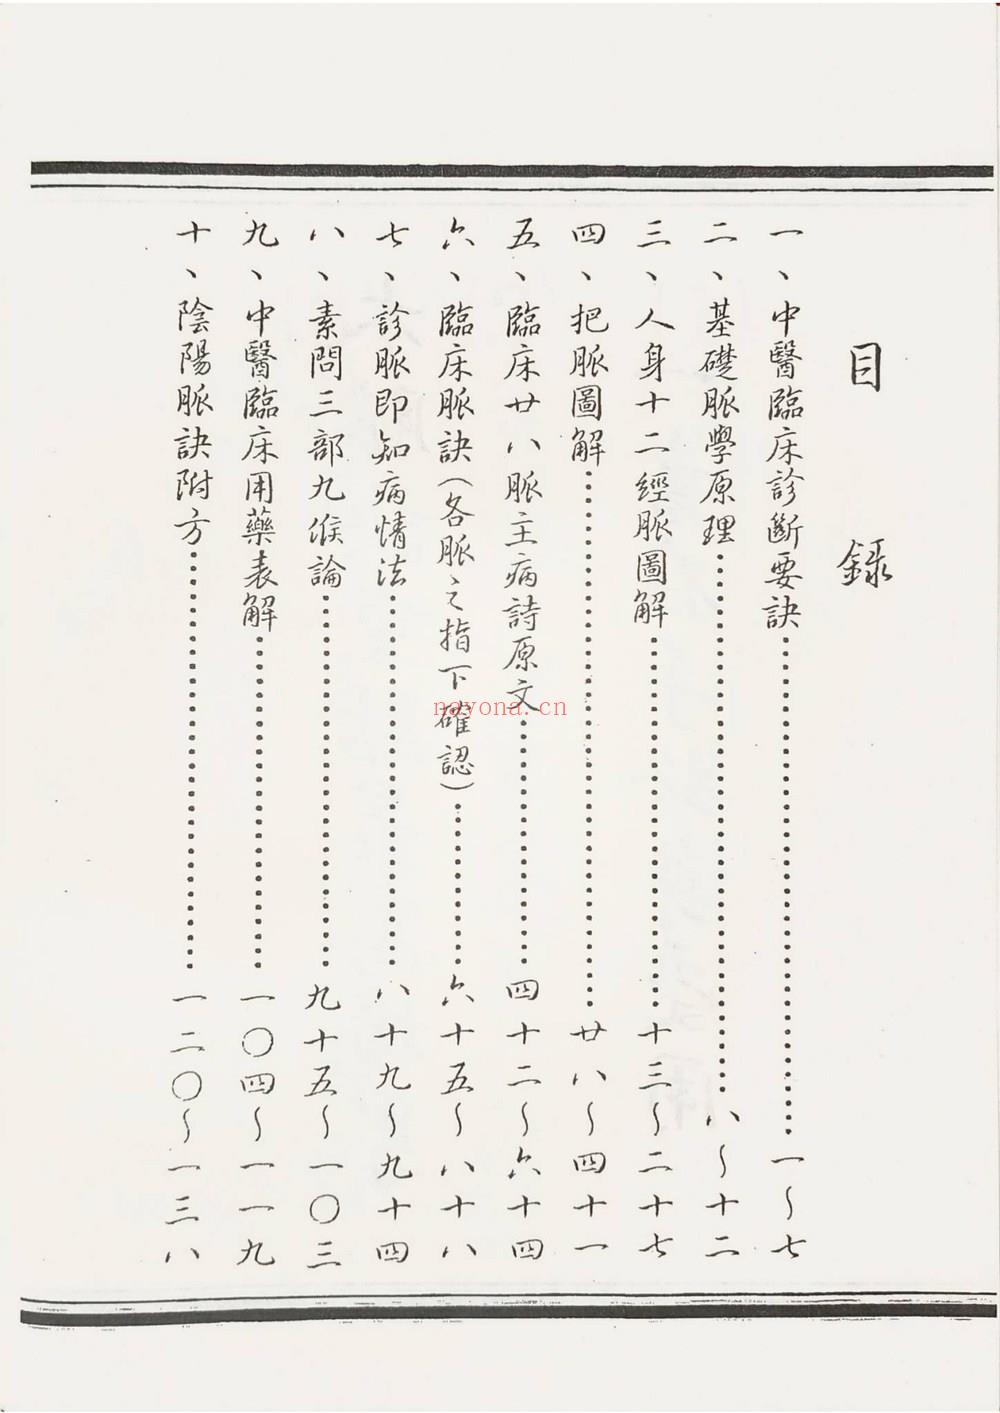 目錄
一、中醫臨床診斷要訣………………一～七
二、基礎脈學原理………………八～十二
三、人身十二經脈圖解………………十三～二十七
四、把脈圖解………………廿八～四十一
五、臨床廿八脈主病詩原文………………四十二～六十四
六、臨床脈訣(各脈之指下確認)………………六十五～八十八
七、診脈即知病情法………………八十九～九十四
八、素問三部九候論………………九十五～一〇三
九、中醫臨床用藥表解………………一〇四～一一九
十、陰陽脈訣附方………………一二〇～一三八
nayona.cn